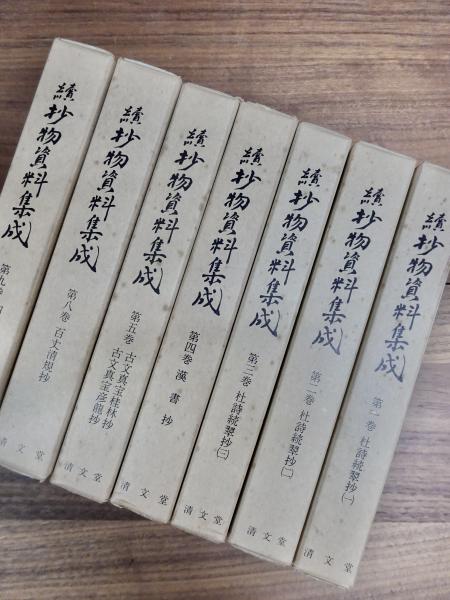 續抄物資料集成
第一巻 杜詩続翠抄(一)
清文堂
續抄物資料集成
第二巻 杜詩続翠抄(二)
清文堂
續抄物資料集成
第三巻 杜詩続翠抄(三)
清文堂
續抄物資料集成
第四巻 漢書抄
清文堂
續抄物資料集成
第五巻 古文真宝桂林抄
古文真宝彦龍抄
清文堂
續抄物資料集成
第八巻 百丈清規抄
清文堂
續抄物資料集成
第九巻